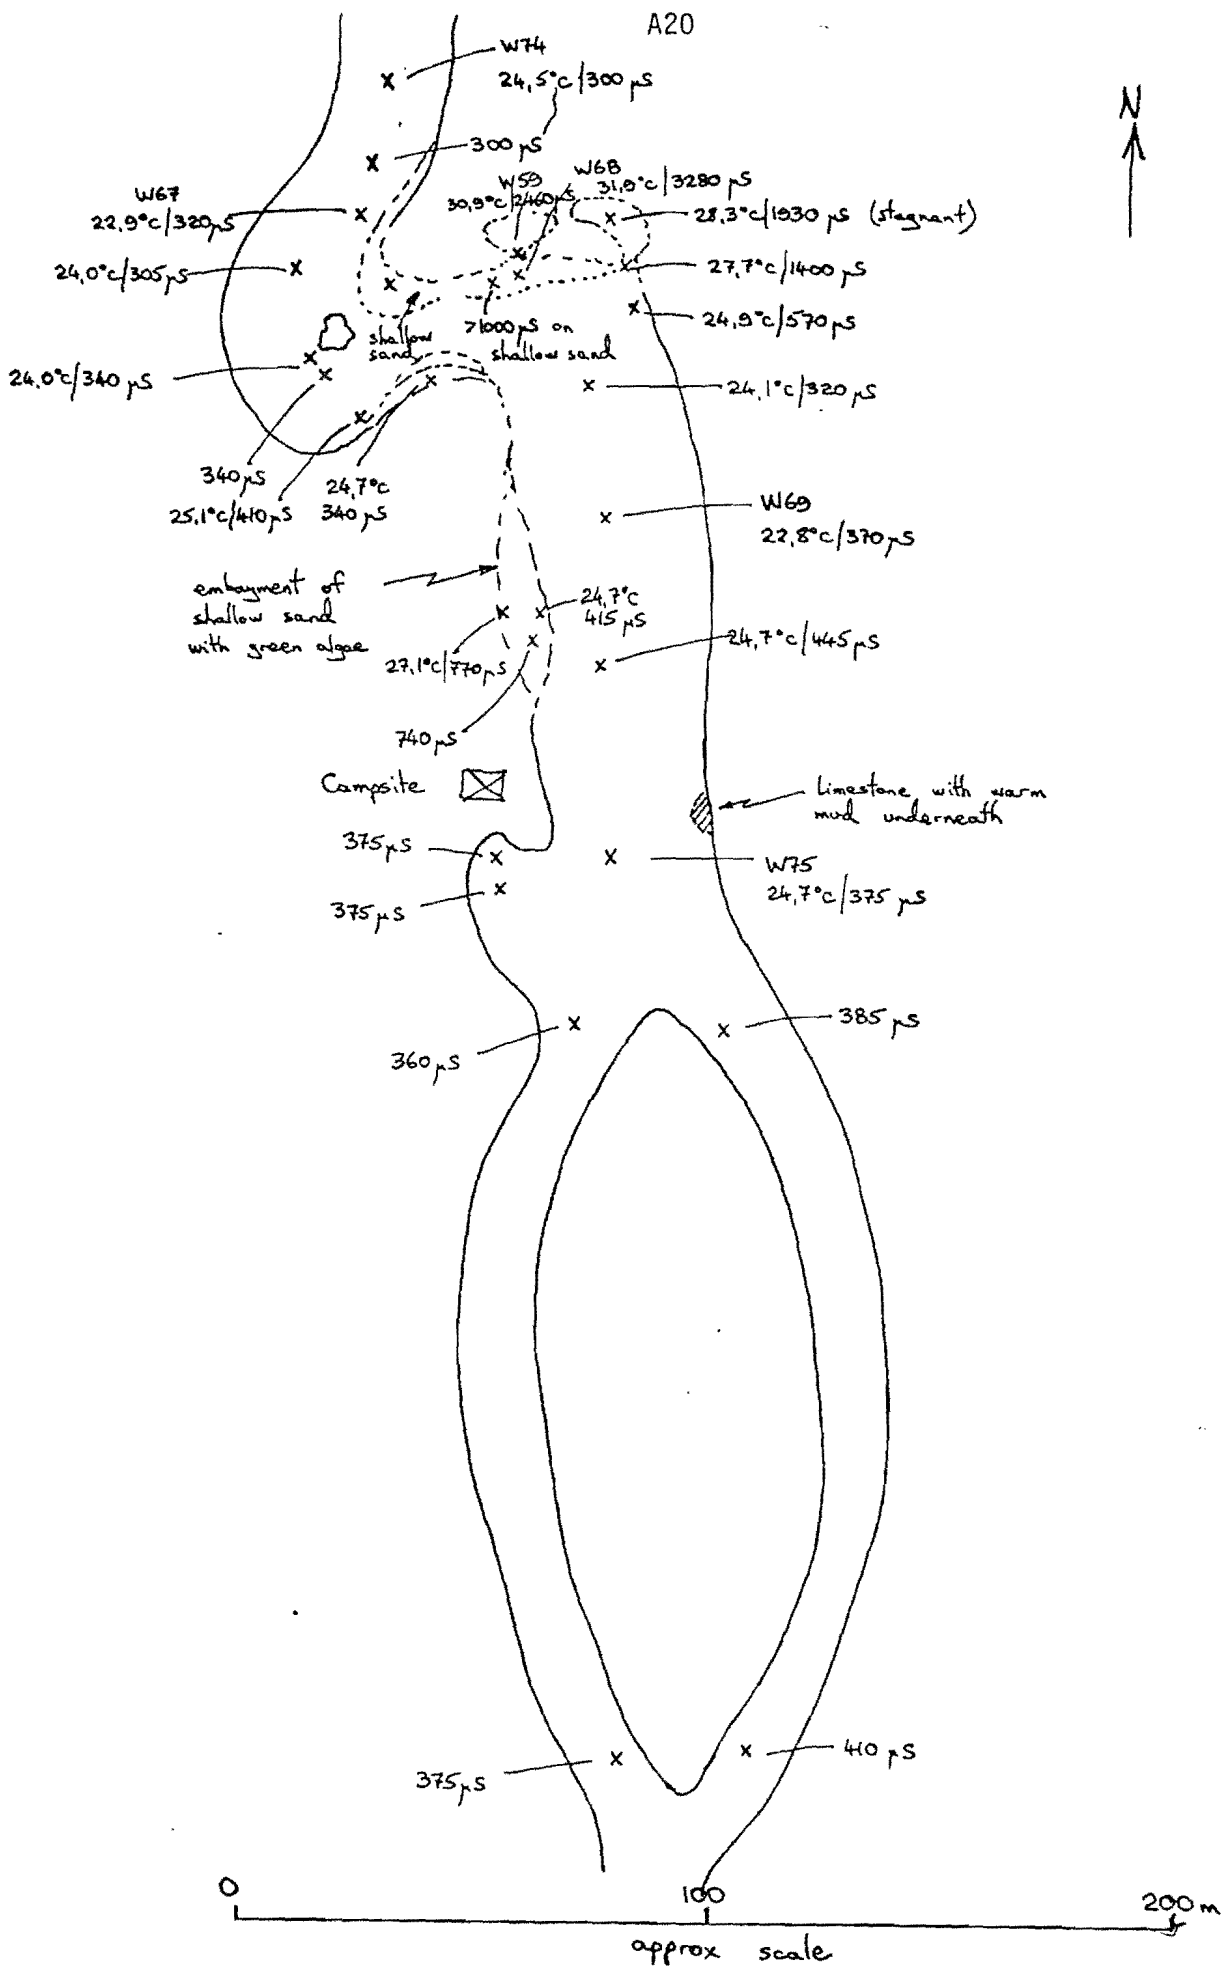 A20
W74
24,5°c/300 µS
N
300 µS
W59
30,9°c/2460µS
W68
31,9°c/3280 µS
W67
22,9°c/320µS
28,3°c/1930 µS (stagnant)
24,0°c/305µS
27,7°c/1400 µS
24,9°c/570µS
shallow
sand
>1000µS on
shallow sand
24,0°c/340 µS
24,1°c/320 µS
340µS
25,1°c/410µS
24,7°c
340 µS
W69
22,8°c/370µS
embayment of
shallow sand
with green algae
24,7°c
415 µS
27,1°c/770µS
24,7°c/445µS
740µS
Campsite
Limestone with warm
mud underneath
375µS
375µS
W75
24,7°c/375 µS
385 µS
360µS
375µS
410 µS
0
100
200m
approx scale